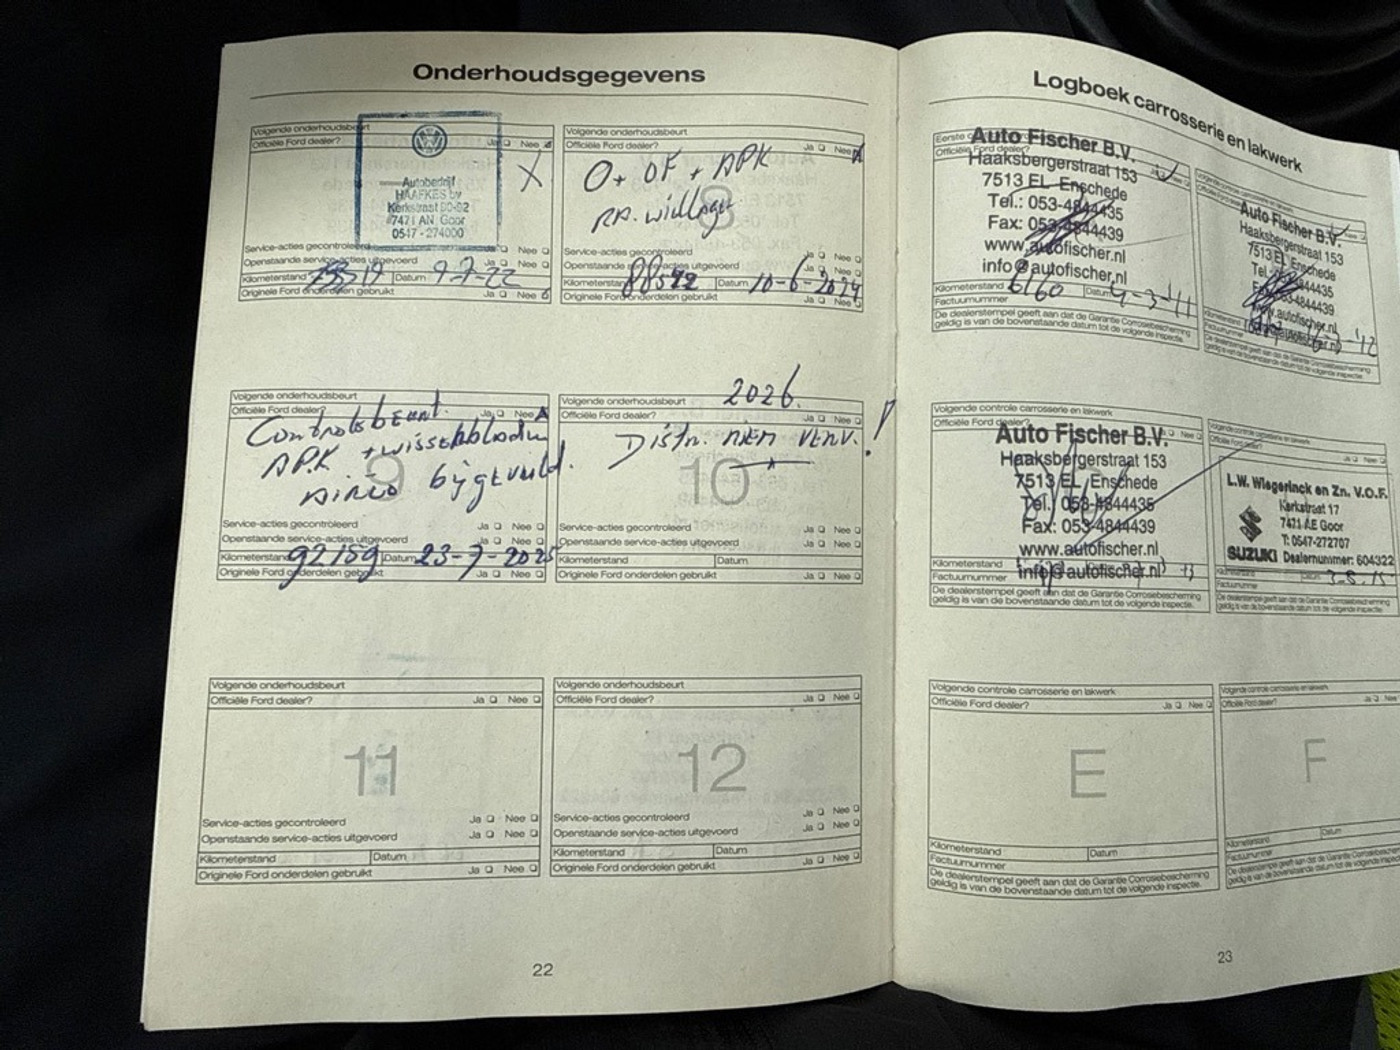 Onderhoudsgegevens
Volgende onderhoudsbeurt
Officiële Ford dealer? Ja Nee
X
Autobedrijf
HAAFKES bv
Kerkstraat 90-92
7471 AN Goor
0547 - 274000
Service-acties gecontroleerd Ja Nee
Openstaande service-acties uitgevoerd Ja Nee
Kilometerstand Datum 9-7-22
Originele Ford onderdelen gebruikt Ja Nee
Volgende onderhoudsbeurt
Officiële Ford dealer? Ja Nee
8
O+ OF + APK
RA.
Service-acties gecontroleerd Ja Nee
Openstaande service-acties uitgevoerd Ja Nee
Kilometerstand 88592 Datum 10-6-2024
Originele Ford onderdelen gebruikt Ja Nee
Volgende onderhoudsbeurt
Officiële Ford dealer? Ja Nee
9
Controlebeurt.
APK + wisserbladen
airco bijgevuld.
Service-acties gecontroleerd Ja Nee
Openstaande service-acties uitgevoerd Ja Nee
Kilometerstand 92159 Datum 23-7-2025
Originele Ford onderdelen gebruikt Ja Nee
2026.
Volgende onderhoudsbeurt
Officiële Ford dealer? Ja Nee
Distr. riem verv. !
10
Service-acties gecontroleerd Ja Nee
Openstaande service-acties uitgevoerd Ja Nee
Kilometerstand Datum
Originele Ford onderdelen gebruikt Ja Nee
Volgende onderhoudsbeurt
Officiële Ford dealer? Ja Nee
11
Service-acties gecontroleerd Ja Nee
Openstaande service-acties uitgevoerd Ja Nee
Kilometerstand Datum
Originele Ford onderdelen gebruikt Ja Nee
Volgende onderhoudsbeurt
Officiële Ford dealer? Ja Nee
12
Service-acties gecontroleerd Ja Nee
Openstaande service-acties uitgevoerd Ja Nee
Kilometerstand Datum
Originele Ford onderdelen gebruikt Ja Nee
22
Logboek carrosserie en lakwerk
Eerste
Officiële Ford dealer?
Auto Fischer B.V.
Haaksbergerstraat 153
7513 EL Enschede
Tel.: 053-4844435
Fax: 053-4844439
www.autofischer.nl
info@autofischer.nl
Kilometerstand 6160 Datum 4-3-'11
Factuurnummer
De dealerstempel geeft aan dat de Garantie Corrosiebescherming
geldig is van de bovenstaande datum tot de volgende inspectie.
Volgende controle carrosserie en lakwerk
Auto Fischer B.V.
Haaksbergerstraat 153
7513 EL Enschede
Tel.
www.autofischer.nl
De dealerstempel geeft aan dat de Garantie Corrosiebescherming
geldig is van de bovenstaande datum tot de volgende inspectie.
Volgende controle carrosserie en lakwerk
Officiële Ford dealer? Ja Nee
Auto Fischer B.V.
Haaksbergerstraat 153
7513 EL Enschede
Tel.: 053-4844435
Fax: 053-4844439
www.autofischer.nl
info@autofischer.nl
Kilometerstand
Factuurnummer
De dealerstempel geeft aan dat de Garantie Corrosiebescherming
geldig is van de bovenstaande datum tot de volgende inspectie.
Volgende controle carrosserie en lakwerk
Officiële Ford dealer? Ja Nee
L.W. Wiegerinck en Zn. V.O.F.
Kerkstraat 17
7471 AE Goor
T: 0547-272707
SUZUKI Dealernummer: 604322
Kilometerstand Datum 3-8-15
Factuurnummer
De dealerstempel geeft aan dat de Garantie Corrosiebescherming
geldig is van de bovenstaande datum tot de volgende inspectie.
Volgende controle carrosserie en lakwerk
Officiële Ford dealer? Ja Nee
E
Kilometerstand Datum
Factuurnummer
De dealerstempel geeft aan dat de Garantie Corrosiebescherming
geldig is van de bovenstaande datum tot de volgende inspectie.
Volgende controle carrosserie en lakwerk
Officiële Ford dealer? Ja Nee
F
Kilometerstand Datum
Factuurnummer
De dealerstempel geeft aan dat de Garantie Corrosiebescherming
geldig is van de bovenstaande datum tot de volgende inspectie.
23